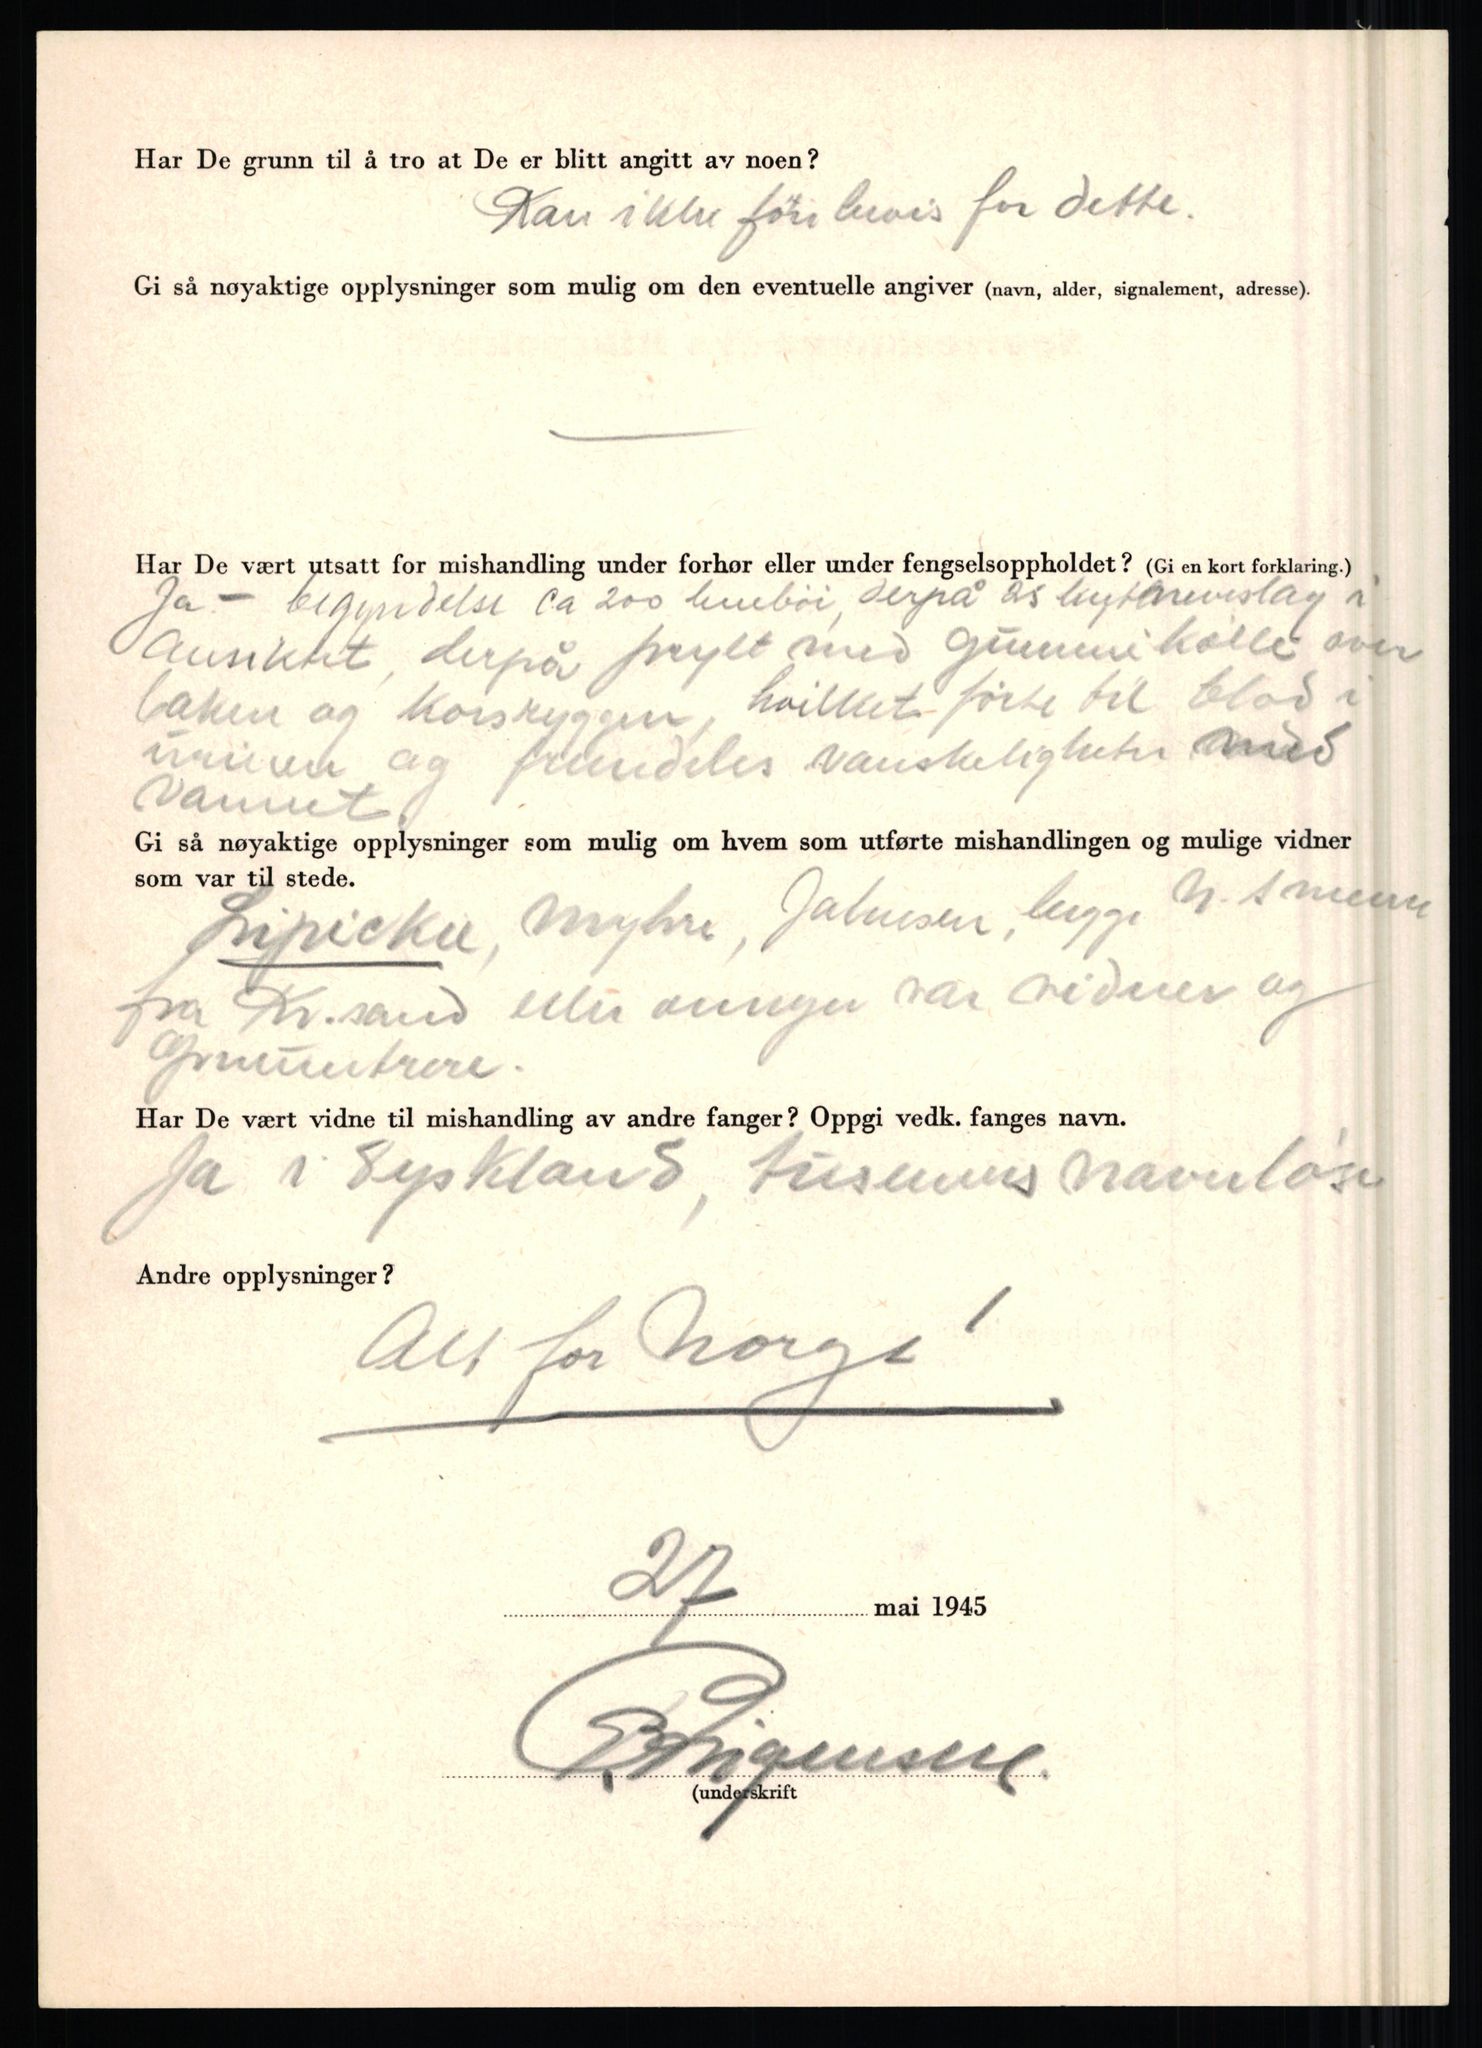 Har De grunn til å tro at De er blitt angitt av noen?
Kan ikke före bevis for dette.
Gi så nøyaktige opplysninger som mulig om den eventuelle angiver (navn, alder, signalement, adresse).
Har De vært utsatt for mishandling under forhør eller under fengselsoppholdet? (Gi en kort forklaring.)
Ja - begyndelse ca 200 knebøi, derpå 25 knytneveslag i
Ansiktet, derpå prylt med Gummikølle over
baken og Korsryggen, hvilket förte til blod i
urinen og fremdeles vanskeligheter med
vannet.
Gi så nøyaktige opplysninger som mulig om hvem som utførte mishandlingen og mulige vidner
som var til stede.
Lipickie, Myhre, Jakobsen, begge N.S menn
fra Kr.sand eller omegn var vidner og
Har De vært vidne til mishandling av andre fanger? Oppgi vedk. fanges navn.
Ja i Tyskland, tusener navnløse
Andre opplysninger?
Alt for Norge!
27 mai 1945
(underskrift